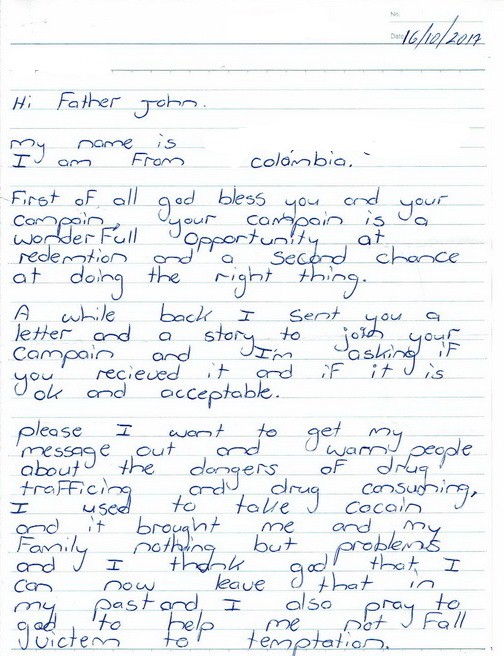 No.
Date 16/10/2017
Hi Father John.
my name is
I am From colómbia.
First of all god bless you and your
campain, your campain is a
wonderFull Opportunity at
redemtion and a second chance
at doing the right thing.
A while back I sent you a
letter and a story to join your
Campain and I'm asking iF
you recieved it and iF it is
ok and acceptable.
please I want to get my
message out and warn people
about the dangers of drug
trafficing and drug consuming,
I used to take cocain
and it brought me and my
Family nothing but problems
and I thank god that I
can now leave that in
my past and I also pray to
god to help me not Fall
victem to temptation.